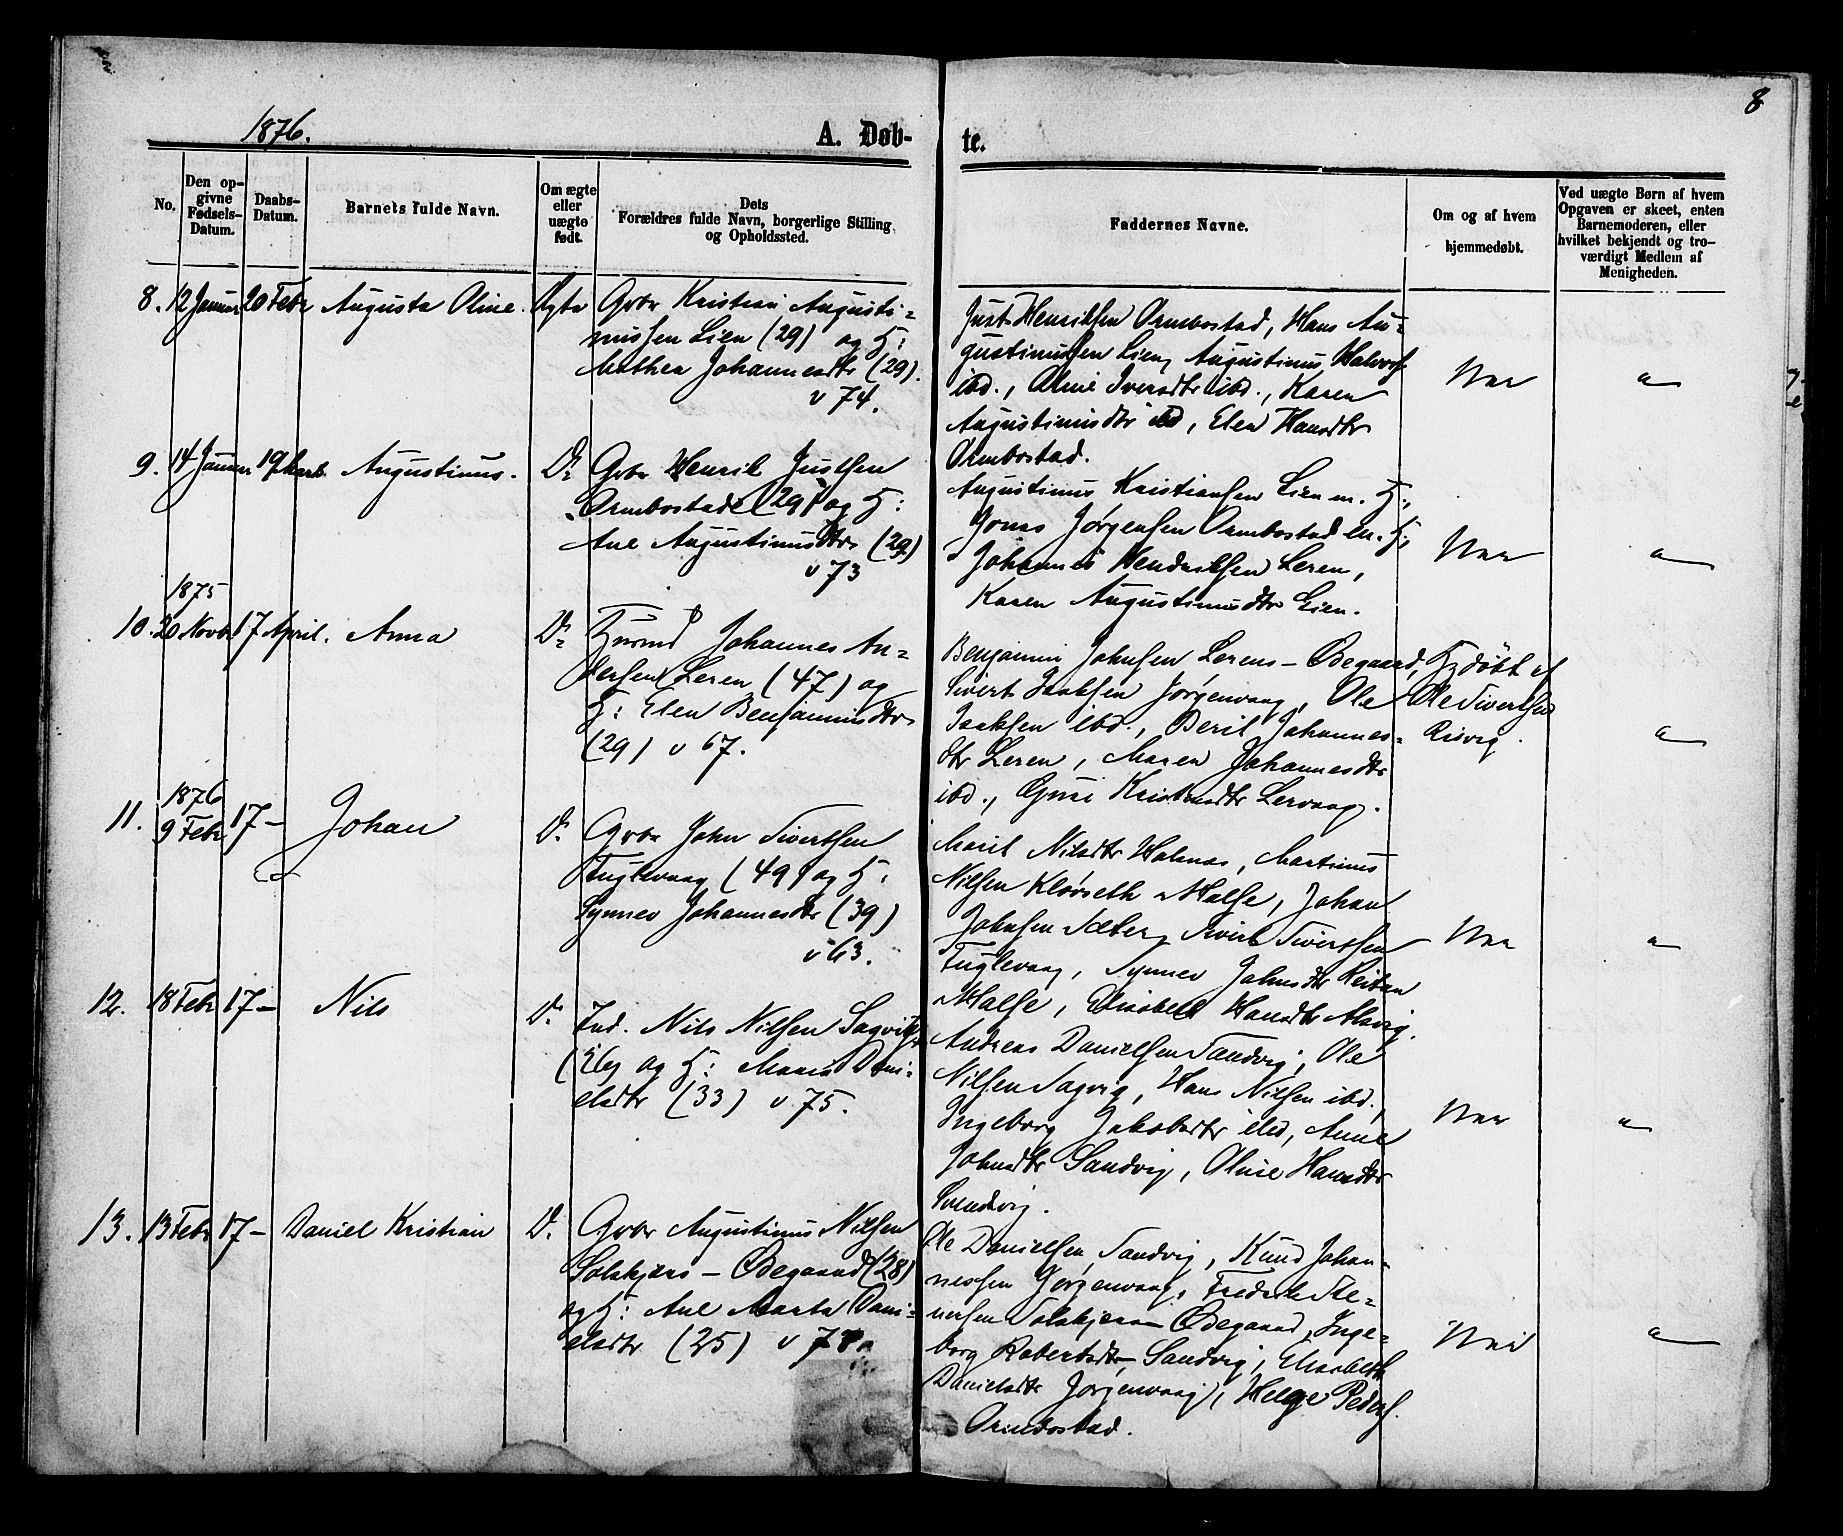 8
1876.
A. Døb-
te.
No.
Den op-
givne
Fødsels-
Datum.
Daabs-
Datum.
Barnets fulde Navn.
Om ægte
eller
uægte
født.
Dets
Forældres fulde Navn, borgerlige Stilling
og Opholdssted.
Faddernes Navne.
Om og af hvem
hjemmedøbt.
Ved uægte Børn af hvem
Opgaven er skeet, enten
Barnemoderen, eller
hvilket bekjendt og tro-
værdigt Medlem af
Menigheden.
8. 12 Januar 20 Febr Augusta Oline. Ægte
Gbr Kristian Augusti-
nussen Lien (29) og H:
Mathea Johannesdtr (29).
v 74.
Just Henriksen Ormbostad, Hans Au-
gustinussen Lien, Augustinus Halvors.
ibd., Oline Iversdtr ibd., Karen
Augustinusdtr ibd, Elen Hansdtr
Ormbostad.
Nei
9. 14 Januar 19 Marts Augustinus. Do
Gbr Henrik Justsen
Ormbostad (29) og H:
Ane Augustinusdtr (29)
v 73
Augustinus Kristiansen Lien m. H:,
Jonas Jørgensen Ormbostad m. H:,
Johannes Hendriksen Leren,
Karen Augustinusdtr Lien.
Nei
1875
10. 20 Novbr 17 April. Anna Do
Husmd Johannes An-
dersen Leren (47) og
H: Elen Benjaminsdtr
(29) v 67.
Benjamin Johnsen Lerens-Ødegaard,
Sivert Isaksen Jørgenvaag, Ole
Isaksen ibd., Beril Johannes-
dtr Leren, Maren Johannesdtr
ibd., Guri Kristensdtr Lervaag.
Hjdøbt af
Ole Sivertsen
Risvig.
1876
11. 9 Febr 17 - Johan Do
Gbr John Sivertsen
Fuglevaag (49) og H:
Synnev Johannesdtr (39)
v 63.
Marit Nilsdtr Halsnæs, Martinus
Nilsen Klørseth, Johan
Johnsen Sæter, Sivert Sivertsen
Fuglevaag, Synnev Johnsdtr Reitan
Elisabeth Hansdtr Alsvig.
Nei
12. 18 Febr 17 - Nils Do
Ind. Nils Nilsen Sagvig
og H: Maria Dani-
elsdtr (33) v 75.
Andreas Danielsen Sandvig, Ole
Nilsen Sagvig, Hans Nilsen ibd.,
Ingeborg Jakobsdtr ibd, Anne
Johnsdtr Sandvig, Oline Hansdtr
Svendvig.
Nei
13. 13 Febr 17 - Daniel Kristian Do
Gbr Augustinus Nilsen
Solskjærs-Ødegaard (28)
og H: Ane Marta Dani-
elsdtr (25) v
Ole Danielsen Sandvig, Knud Johan-
nessen Jørgenvaag, Fredrik Ste-
nersen Solskjærs Ødegaard, Inge-
borg Robertsdtr Sandvig, Elisabeth
Danielsdtr Jørgenvaag, Helge Peders.
Ormbostad.
Nei